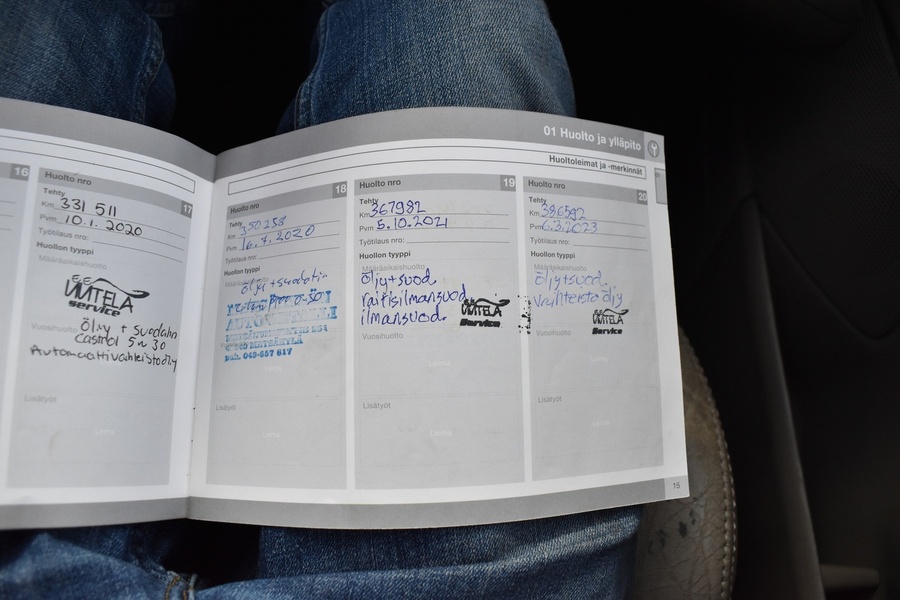 01 Huolto ja ylläpito
Huoltoleimat ja -merkinnät
16
17
Tehty
Km 331 511
Pvm 10.1. 2020
Työtilaus nro:
Huollon tyyppi
Määräaikaishuolto
VIITELA
Service
Vuosihuolto
öljy + suodatin
Castrol 5 30
Automaattivaihteistoöljy
Lisätyöt
Huolto nro 18
Tehty
Km 350 258
Pvm 16.7. 2020
Työtilaus nro:
Huollon tyyppi
öljyt + suodatin
0-30
puh. 049-657 817
Leima
Lisätyöt
Leima
Huolto nro 19
Tehty
Km 367982
Pvm 5.10.2021
Työtilaus nro:
Huollon tyyppi
Määräaikaishuolto
öljy+suod.
raitisilmansuod.
ilmansuod.
Service
Vuosihuolto
Leima
Lisätyöt
Leima
Huolto nro 20
Tehty
Km 386592
Pvm 6.3.2023
Työtilaus nro:
Huollon tyyppi
Määräaikaishuolto
öljyt+suod.
vaihteisto öljy
Service
Vuosihuolto
Leima
Lisätyöt
Leima
15